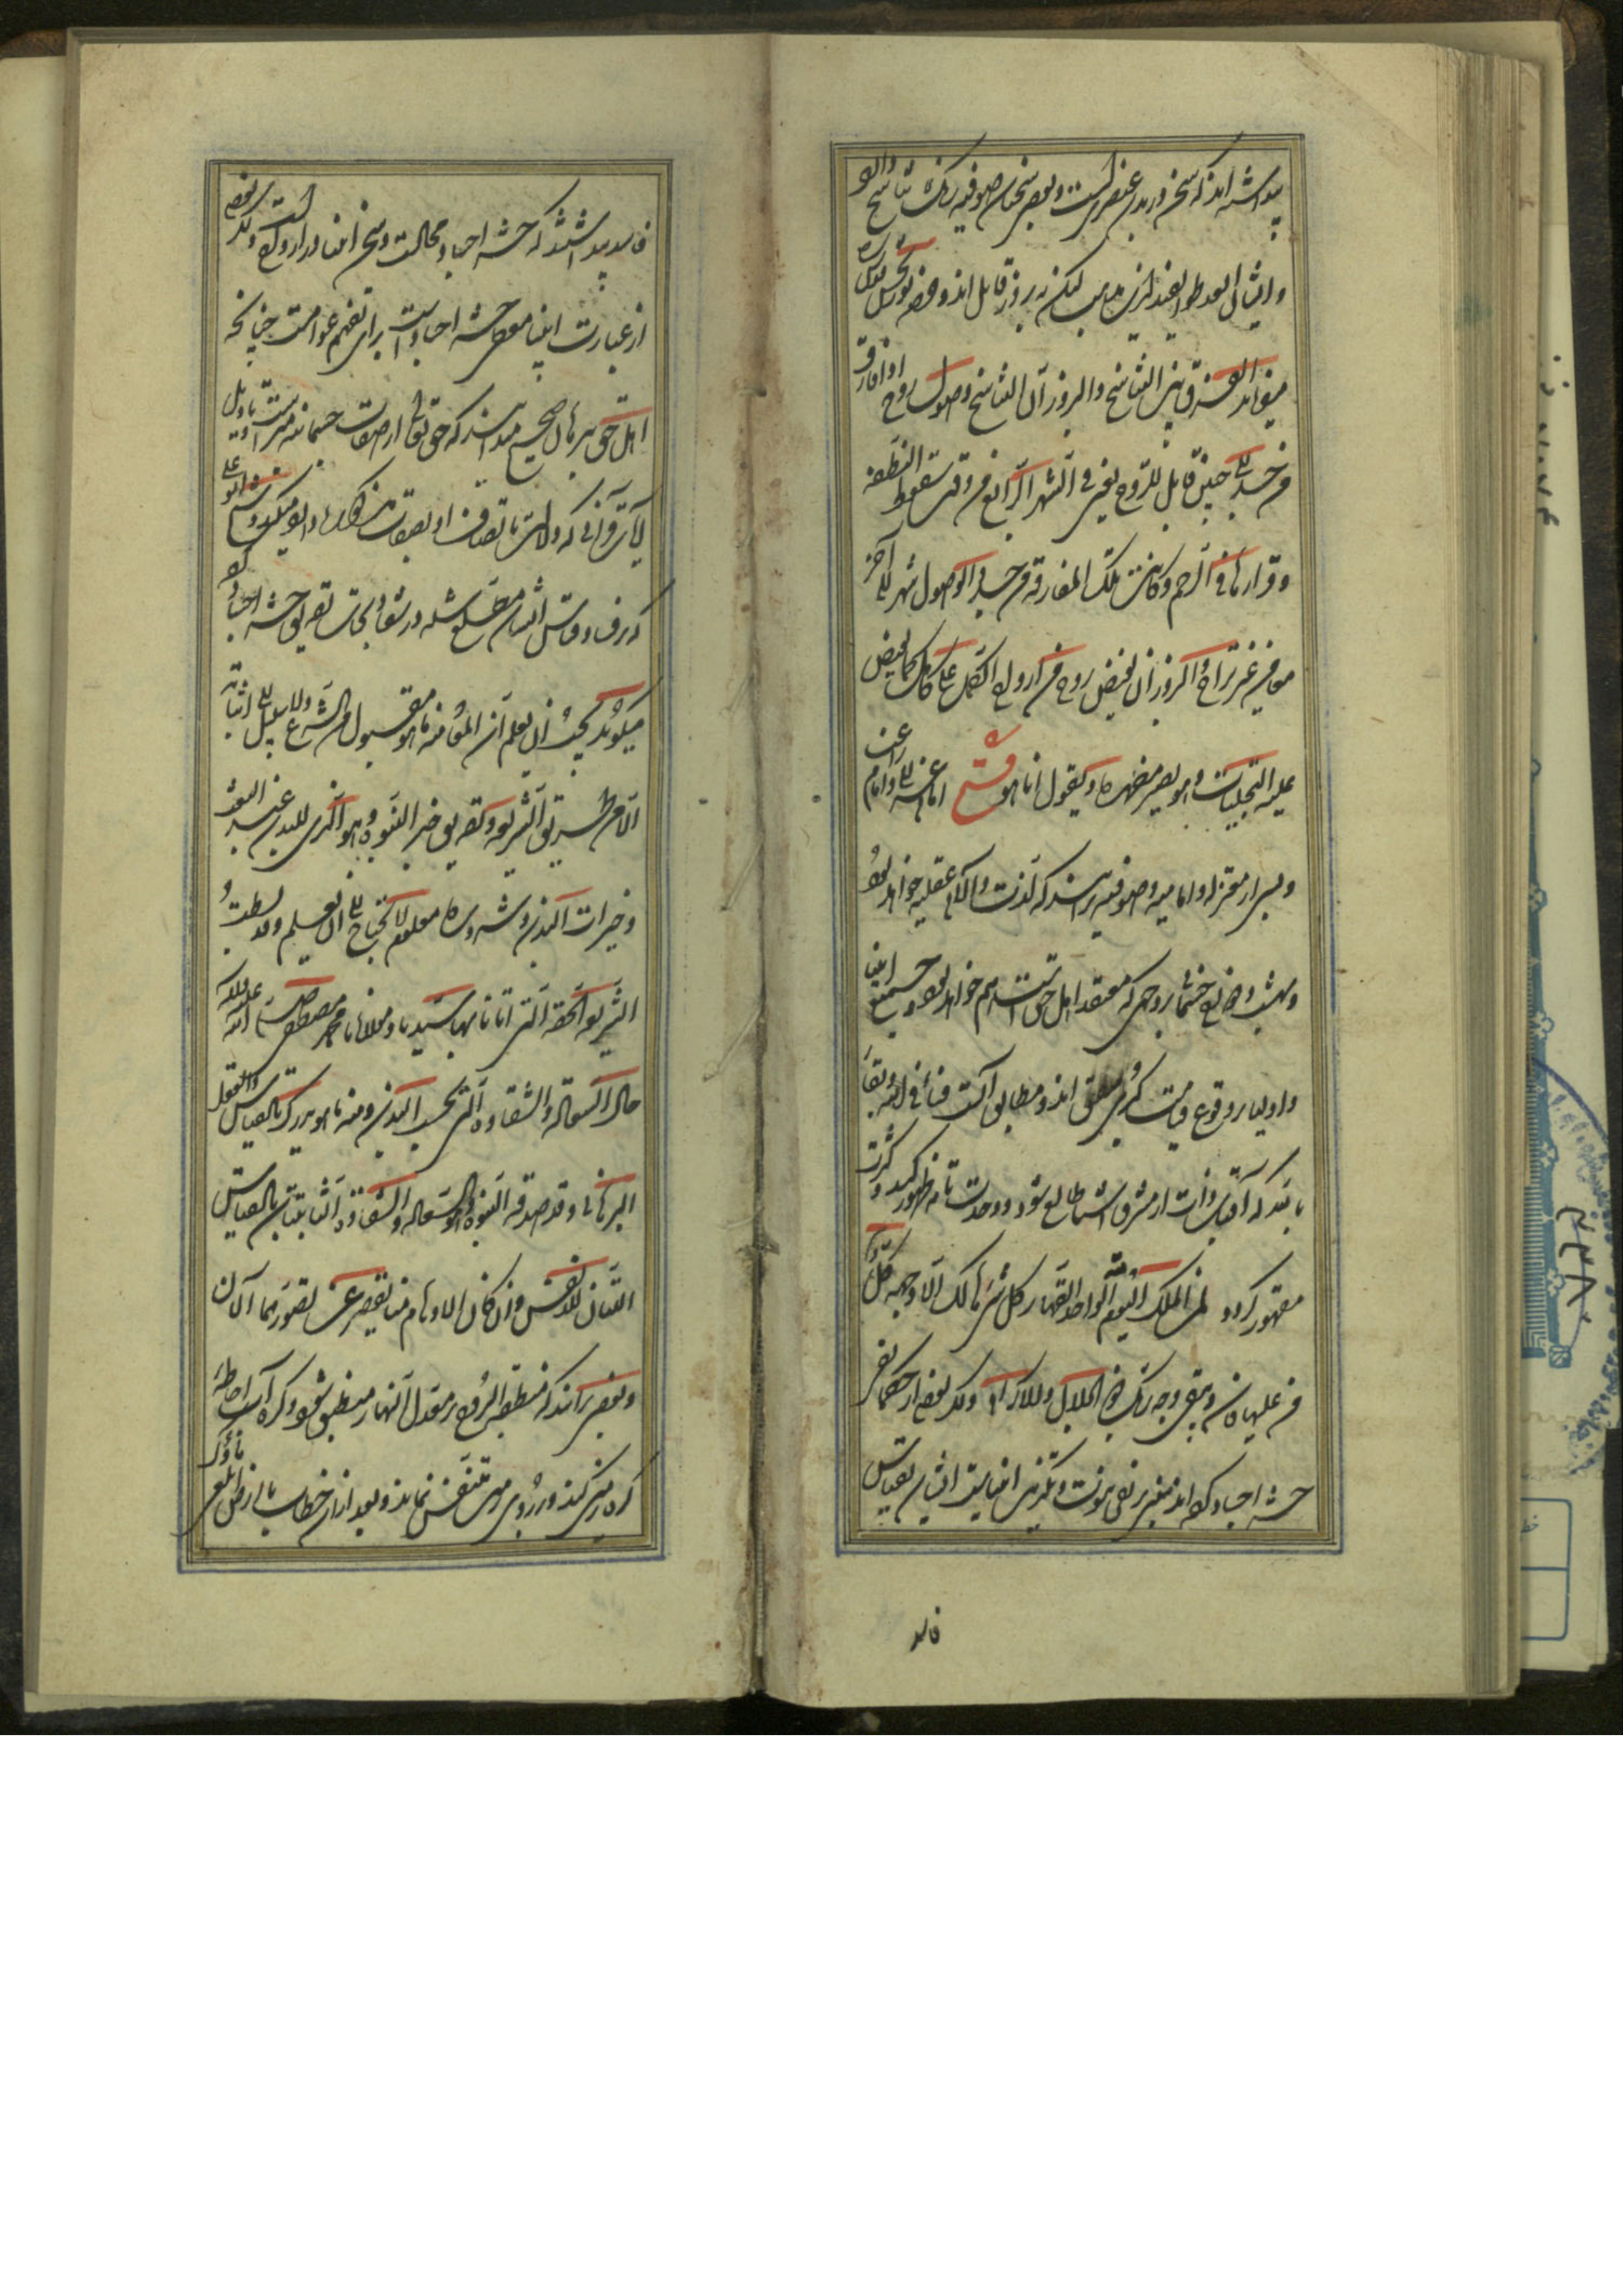 پنداشته اند که سخن در بدن عنصریست و بعضی سخنان صوفیه رنگ تناسخ دارد
و ایشان لیکن به بروز قایل اند و حضرت نوربخش قدس سره
میفرماید الفرق بین التناسخ والبروز ان التناسخ وصول روح اذا فارق
من جسد الی جنین قابل للروح یعنی فی الشهر الرابع من وقت سقوط النطفة
و قرارها فی الرحم و کانت تلک المفارقة من جسد والوصول الی آخر
معا من غیر تراخ والبروز ان یفیض روح من ارواح الکمل علی کامل کما یفیض
علیه التجلیات و هو یصیر مظهره و یقول انا هو فتح امام غزالی و امام راغب
و بسی از معتزله و امامیه و صوفیه برانند که لذت و آلام عقلیه خواهد بود
و بهشت و دوزخ جسمانی بر وجهی که معتقد اهل حق است هم خواهد بود و جمیع انبیا
و اولیا بر وقوع قیامت کبری متفق اند و مطابق آنست فنا فی الله و بقا
بالله که آفتاب ذات از مشرق اشیا طالع شود و وحدت تامه ظهور کند و کثرت
مقهور گردد لمن الملک الیوم لله الواحد القهار کل شیء هالک الا وجهه کل
من علیها فان و یبقی وجه ربک ذو الجلال والاکرام ولکن بعضی از حکما نفی
حشر اجساد کرده اند مبنی بر نفی نبوت و تکذیب انبیاست ایشان بقیاس
فاسد
فاسد پنداشتند که حشر اجساد محالست و سخن انبیا دور از وقوع است ولکن بعضی
از عبارت انبیا معنی حشر اجساد است برای تفهیم عوامست چنانکه
اهل حق ببرهان صحیح میدانند که حق تعالی از صفات جسمانی مبراست و تاویل
آیات قرآنی که دلالت باتصاف او بصفات مذکوره دارد میکنند و شیخ ابو علی
که بر فساد قیاس ایشان مطلع شده در شفا و نجات تصدیق حشر اجساد کرده
میگوید یجب ان یعلم ان المعاد منه ما هو مقبول من الشرع ولا سبیل الی اثباته
الا من طریق الشریعة و تصدیق خبر النبوة و هو الذی للبدن عند البعث
و خیرات البدن و شروره معلوم لا یحتاج الی ان یعلم وقد بسطت
الشریعة الحقة التی اتانا بها سیدنا و مولانا محمد مصطفی صلی الله علیه و آله
حال السعادة والشقاوة التی بحسب البدن و منه ما هو مدرک بالعقل والقیاس
البرهانی وقد صدقه النبوة و هو السعادة والشقاوة الثابتتان بالقیاس
اللتان للانفس و ان کان الاوهام منا یقصر عن تصورهما الآن
و بعضی برانند که منطقة البروج بر معدل النهار منطبق شود و کره آب احاطه
کره زمین کند و بر روی زمین متنفس نماند و بعد از آن خطاب یا ارض ابلعی ماءک